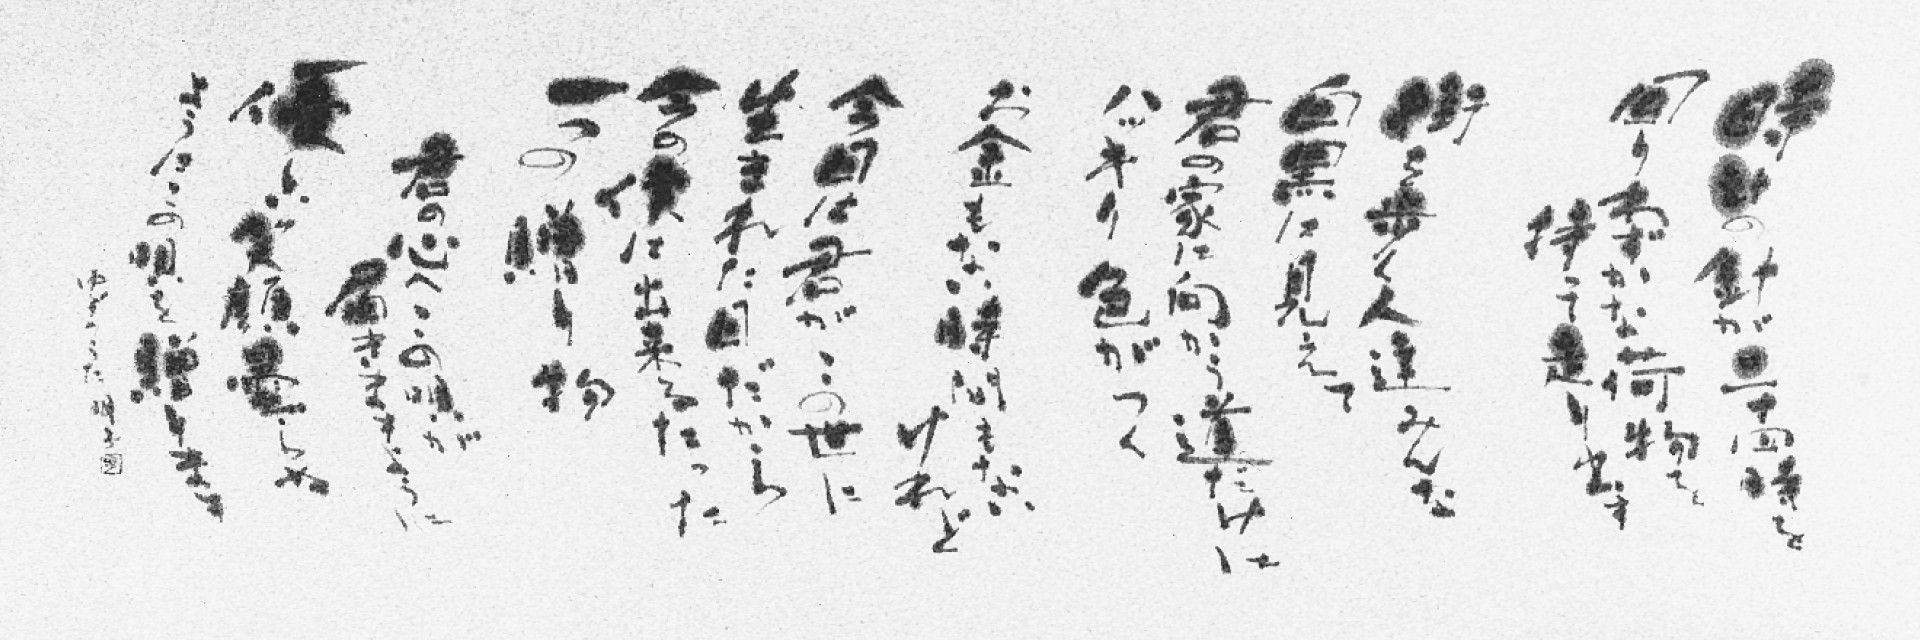 時計の針が二十四時を
回り僅かな荷物を
持って走り出す
街を歩く人達みんな
白黒に見えて
君の家に向かう道だけは
ハッキリ色がつく
お金もない時間もない
けれど
今日は君がこの世に
生まれた日だから
今の僕に出来るたった
一つの贈り物
君の心へこの唄が
届きますように
優しい笑顔曇らぬ
ようにこの唄を贈ります